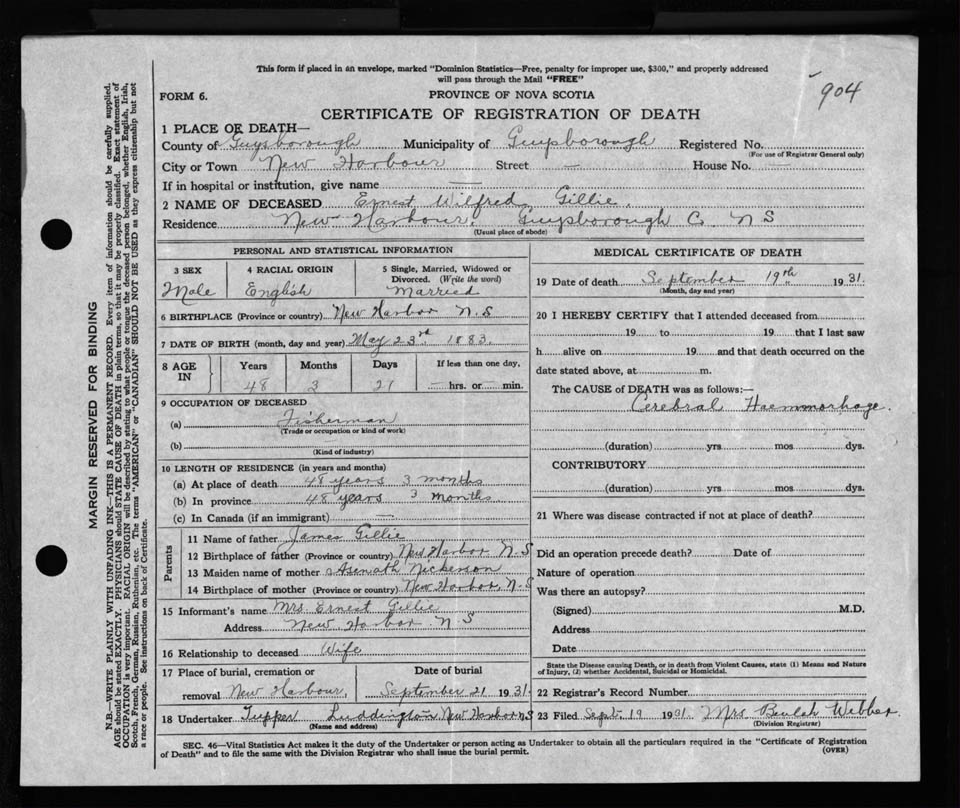 This form if placed in an envelope, marked "Dominion Statistics—Free, penalty for improper use, $300," and properly addressed
will pass through the Mail "FREE"
904
FORM 6.
PROVINCE OF NOVA SCOTIA
CERTIFICATE OF REGISTRATION OF DEATH
1 PLACE OF DEATH—
County of Guysborough Municipality of Guysborough Registered No.
(For use of Registrar General only)
City or Town New Harbour Street — House No. —
If in hospital or institution, give name —
2 NAME OF DECEASED Ernest Wilfred Gillie.
Residence New Harbour, Guysborough Co N S
(Usual place of abode)
PERSONAL AND STATISTICAL INFORMATION
3 SEX
Male
4 RACIAL ORIGIN
English
5 Single, Married, Widowed or
Divorced. (Write the word)
Married
6 BIRTHPLACE (Province or country) New Harbor N.S
7 DATE OF BIRTH (month, day and year) May 23rd 1883.
8 AGE
IN
Years Months Days If less than one day,
48 3 21 — hrs. or — min.
9 OCCUPATION OF DECEASED
(a) Fisherman
(Trade or occupation or kind of work)
(b)
(Kind of industry)
10 LENGTH OF RESIDENCE (in years and months)
(a) At place of death 48 years 3 months
(b) In province 48 years 3 months
(c) In Canada (if an immigrant) —
Parents
11 Name of father James Gillie
12 Birthplace of father (Province or country) New Harbor N.S
13 Maiden name of mother Asenath Nickerson
14 Birthplace of mother (Province or country) New Harbor, N.S
15 Informant's name Mrs. Ernest Gillie
Address New Harbor N S
16 Relationship to deceased Wife
17 Place of burial, cremation or
removal New Harbour,
Date of burial
September 21 1931
18 Undertaker Tupper Luddington New Harbor N S
(Name and address)
MEDICAL CERTIFICATE OF DEATH
19 Date of death September 19th 1931.
(Month, day and year)
20 I HEREBY CERTIFY that I attended deceased from
19 to 19 that I last saw
h alive on 19 and that death occurred on the
date stated above, at m.
The CAUSE of DEATH was as follows:—
Cerebral Haemmorhage.
(duration) yrs mos dys.
CONTRIBUTORY
(duration) yrs mos dys.
21 Where was disease contracted if not at place of death?
Did an operation precede death? Date of
Nature of operation
Was there an autopsy?
(Signed) M.D.
Address
Date
State the Disease causing Death, or in death from Violent Causes, state (1) Means and Nature
of Injury, (2) whether Accidental, Suicidal or Homicidal.
22 Registrar's Record Number
23 Filed Sept. 19 1931 Mrs Beulah Webber.
(Division Registrar)
SEC. 46—Vital Statistics Act makes it the duty of the Undertaker or person acting as Undertaker to obtain all the particulars required in the "Certificate of Registration
of Death" and to file the same with the Division Registrar who shall issue the burial permit.
(OVER)
MARGIN RESERVED FOR BINDING
N.B.—WRITE PLAINLY WITH UNFADING INK—THIS IS A PERMANENT RECORD. Every item of information should be carefully supplied.
AGE should be stated EXACTLY. PHYSICIANS should STATE CAUSE OF DEATH in plain terms, so that it may be properly classified. Exact statement of
OCCUPATION is very important. RACIAL ORIGIN will be described by stating to what people or tongue the deceased person belonged, whether English, Irish,
Scotch, French, German, Russian, Ruthenian, etc. The terms "AMERICAN" or "CANADIAN" SHOULD NOT BE USED as they express citizenship but not
a race or people. See instructions on back of Certificate.